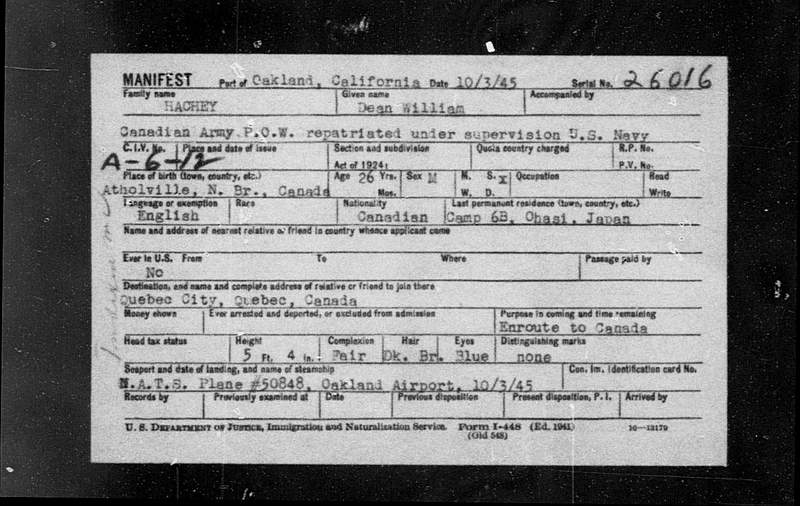 MANIFEST Port of Oakland, California Date 10/3/45 Serial No. 26016
Family name Given name Accompanied by
HACHEY Dean William
Canadian Army P.O.W. repatriated under supervision U.S. Navy
C.I.V. No. Place and date of issue Section and subdivision Quota country charged R.P. No.
A-6-12 Act of 1924: P.V. No.
Place of birth (town, country, etc.) Age 26 Yrs. Sex M M. S. X Occupation Read
Atholville, N. Br., Canada Mos. W. D. Write
Language or exemption Race Nationality Last permanent residence (town, country, etc.)
English Canadian Camp 6B, Ohasi, Japan
Name and address of nearest relative or friend in country whence applicant came
Ever in U.S. From To Where Passage paid by
No
Destination, and name and complete address of relative or friend to join there
Quebec City, Quebec, Canada
Money shown Ever arrested and deported, or excluded from admission Purpose in coming and time remaining
Enroute to Canada
Head tax status Height Complexion Hair Eyes Distinguishing marks
5 Ft. 4 In. Fair Dk. Br. Blue none
Seaport and date of landing, and name of steamship Con. Im. Identification card No.
N.A.T.S. Plane #50848, Oakland Airport, 10/3/45
Records by Previously examined at Date Previous disposition Present disposition, P. I. Arrived by
U. S. DEPARTMENT OF JUSTICE, Immigration and Naturalization Service. Form I-448 (Ed. 1941) 16—13179
(Old 548)